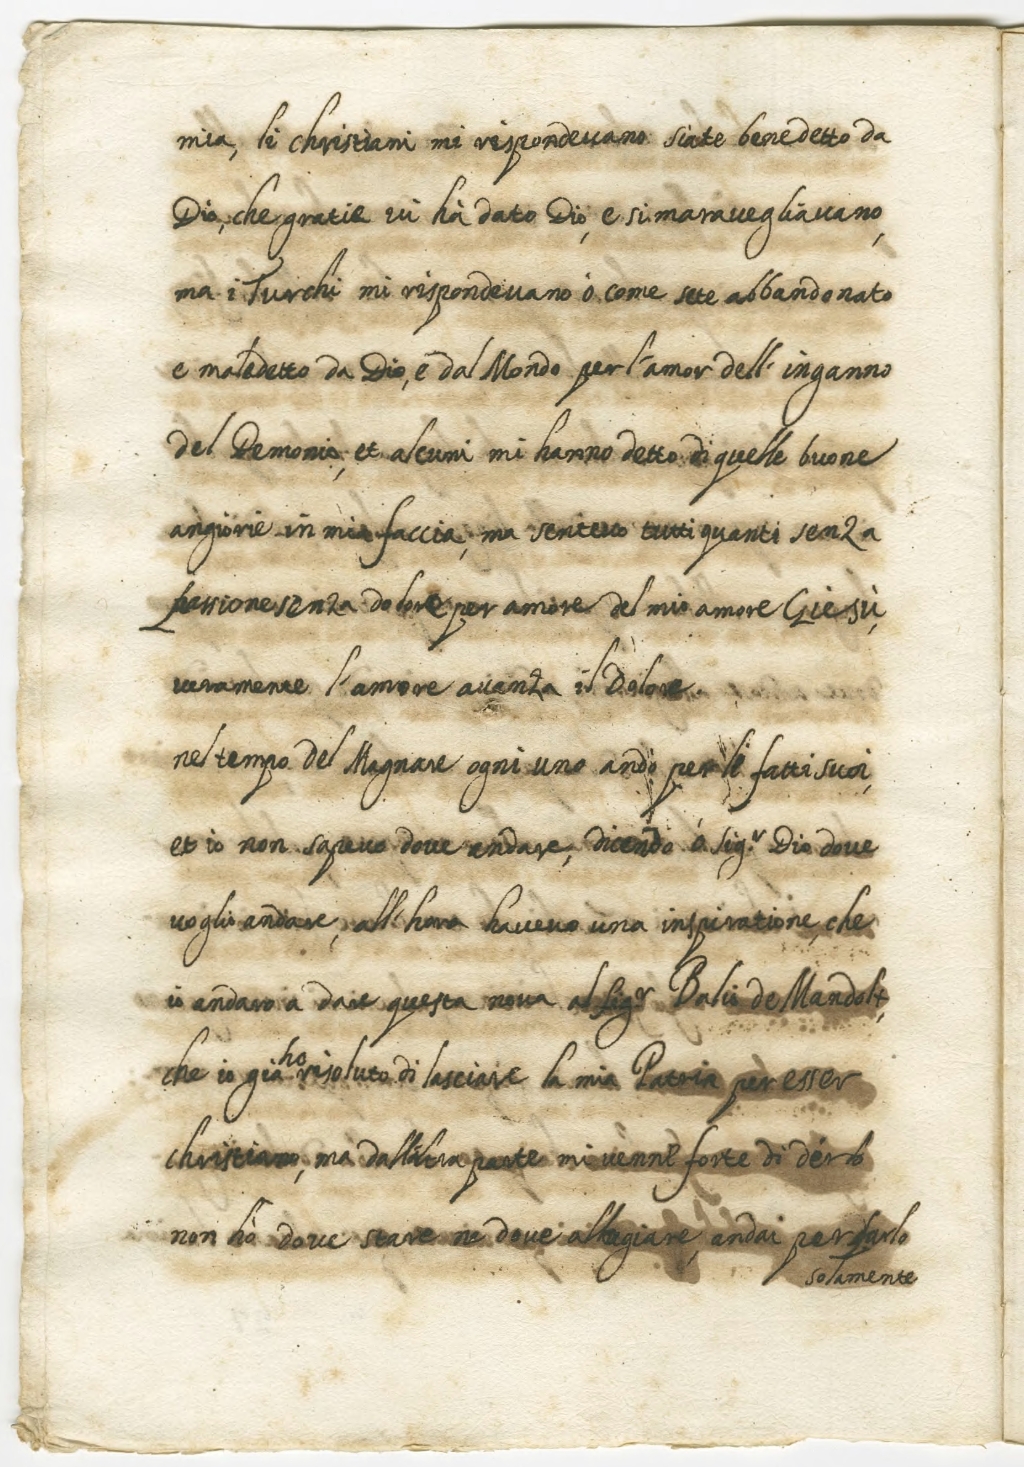 mia, li christiani mi rispondeuano siate benedetto da
Dio, che gratie ui hà dato Dio, e si maravegliauano,
ma i Turchi mi rispondeuano ó come sete abbandonato
e maledetto da Dio, e dal Mondo per l'amor dell' inganno
del Demonio, et alcuni mi hanno detto di quelle buone
angiorie in mia faccia, ma senteuo tutti quanti senza
passione senza dolore per amore del mio amore Giesù,
ueramente l'amore auanza il Dolore.
nel tempo del Magnare ogni uno andò per li fatti suoi,
et io non sapeuo doue andare, dicendo ó Sig.r Dio doue
uoglio andare, all'hora haueuo una inspiratione, che
io andaro a dare questa noua al Sig.r Balio de Mandols,
che io già ho risoluto di lasciare la mia Patria per esser
christiano, ma dall'altra parte mi venne forte di dirlo
non hò doue stare ne doue allogiare, andai per farlo
solamente